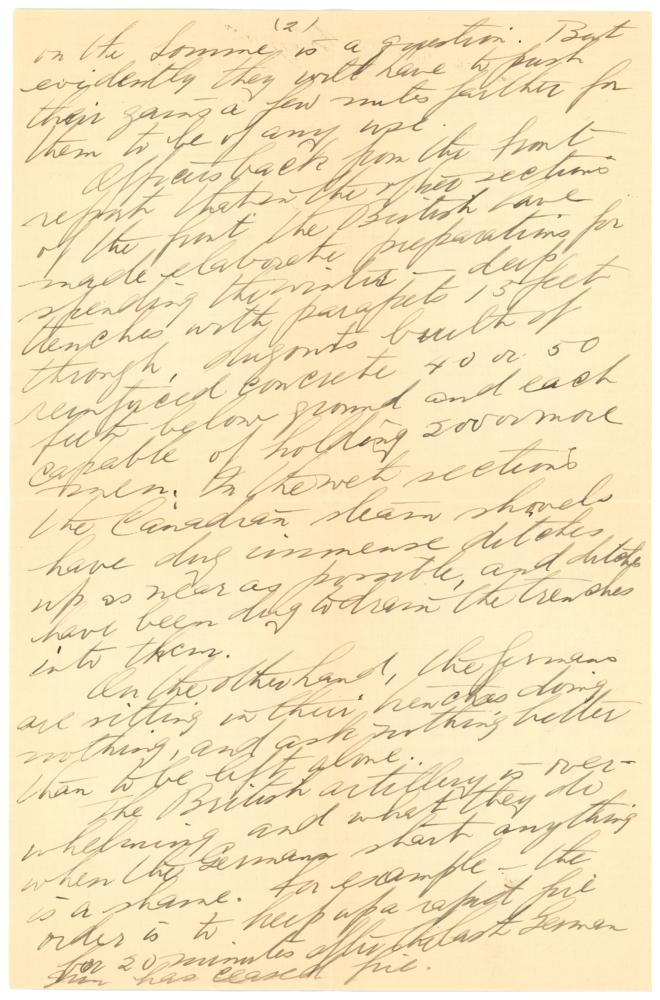 (2)
on the Somme is a question. But
evidently they will have to push
their gains a few miles farther for
them to be of any use.
Officers back from the front
report that in the other sections
of the front the British have
made elaborate preparations for
spending the winter – deep
trenches with parapets 15 feet
through, dugouts built of
reinforced concrete 40 or 50
feet below ground and each
capable of holding 200 or more
men. In the wet sections
the Canadian steam shovels
have dug immense ditches
up as near as possible, and ditches
have been dug to drain the trenches
into them.
On the other hand, the Germans
are sitting in their trenches doing
nothing, and ask nothing better
than to be left alone.
The British artillery is over-
whelming and what they do
when the Germans start anything
is a shame. For example – the
order is to keep up a rapid fire
for 20 minutes after the last German
gun has ceased fire.